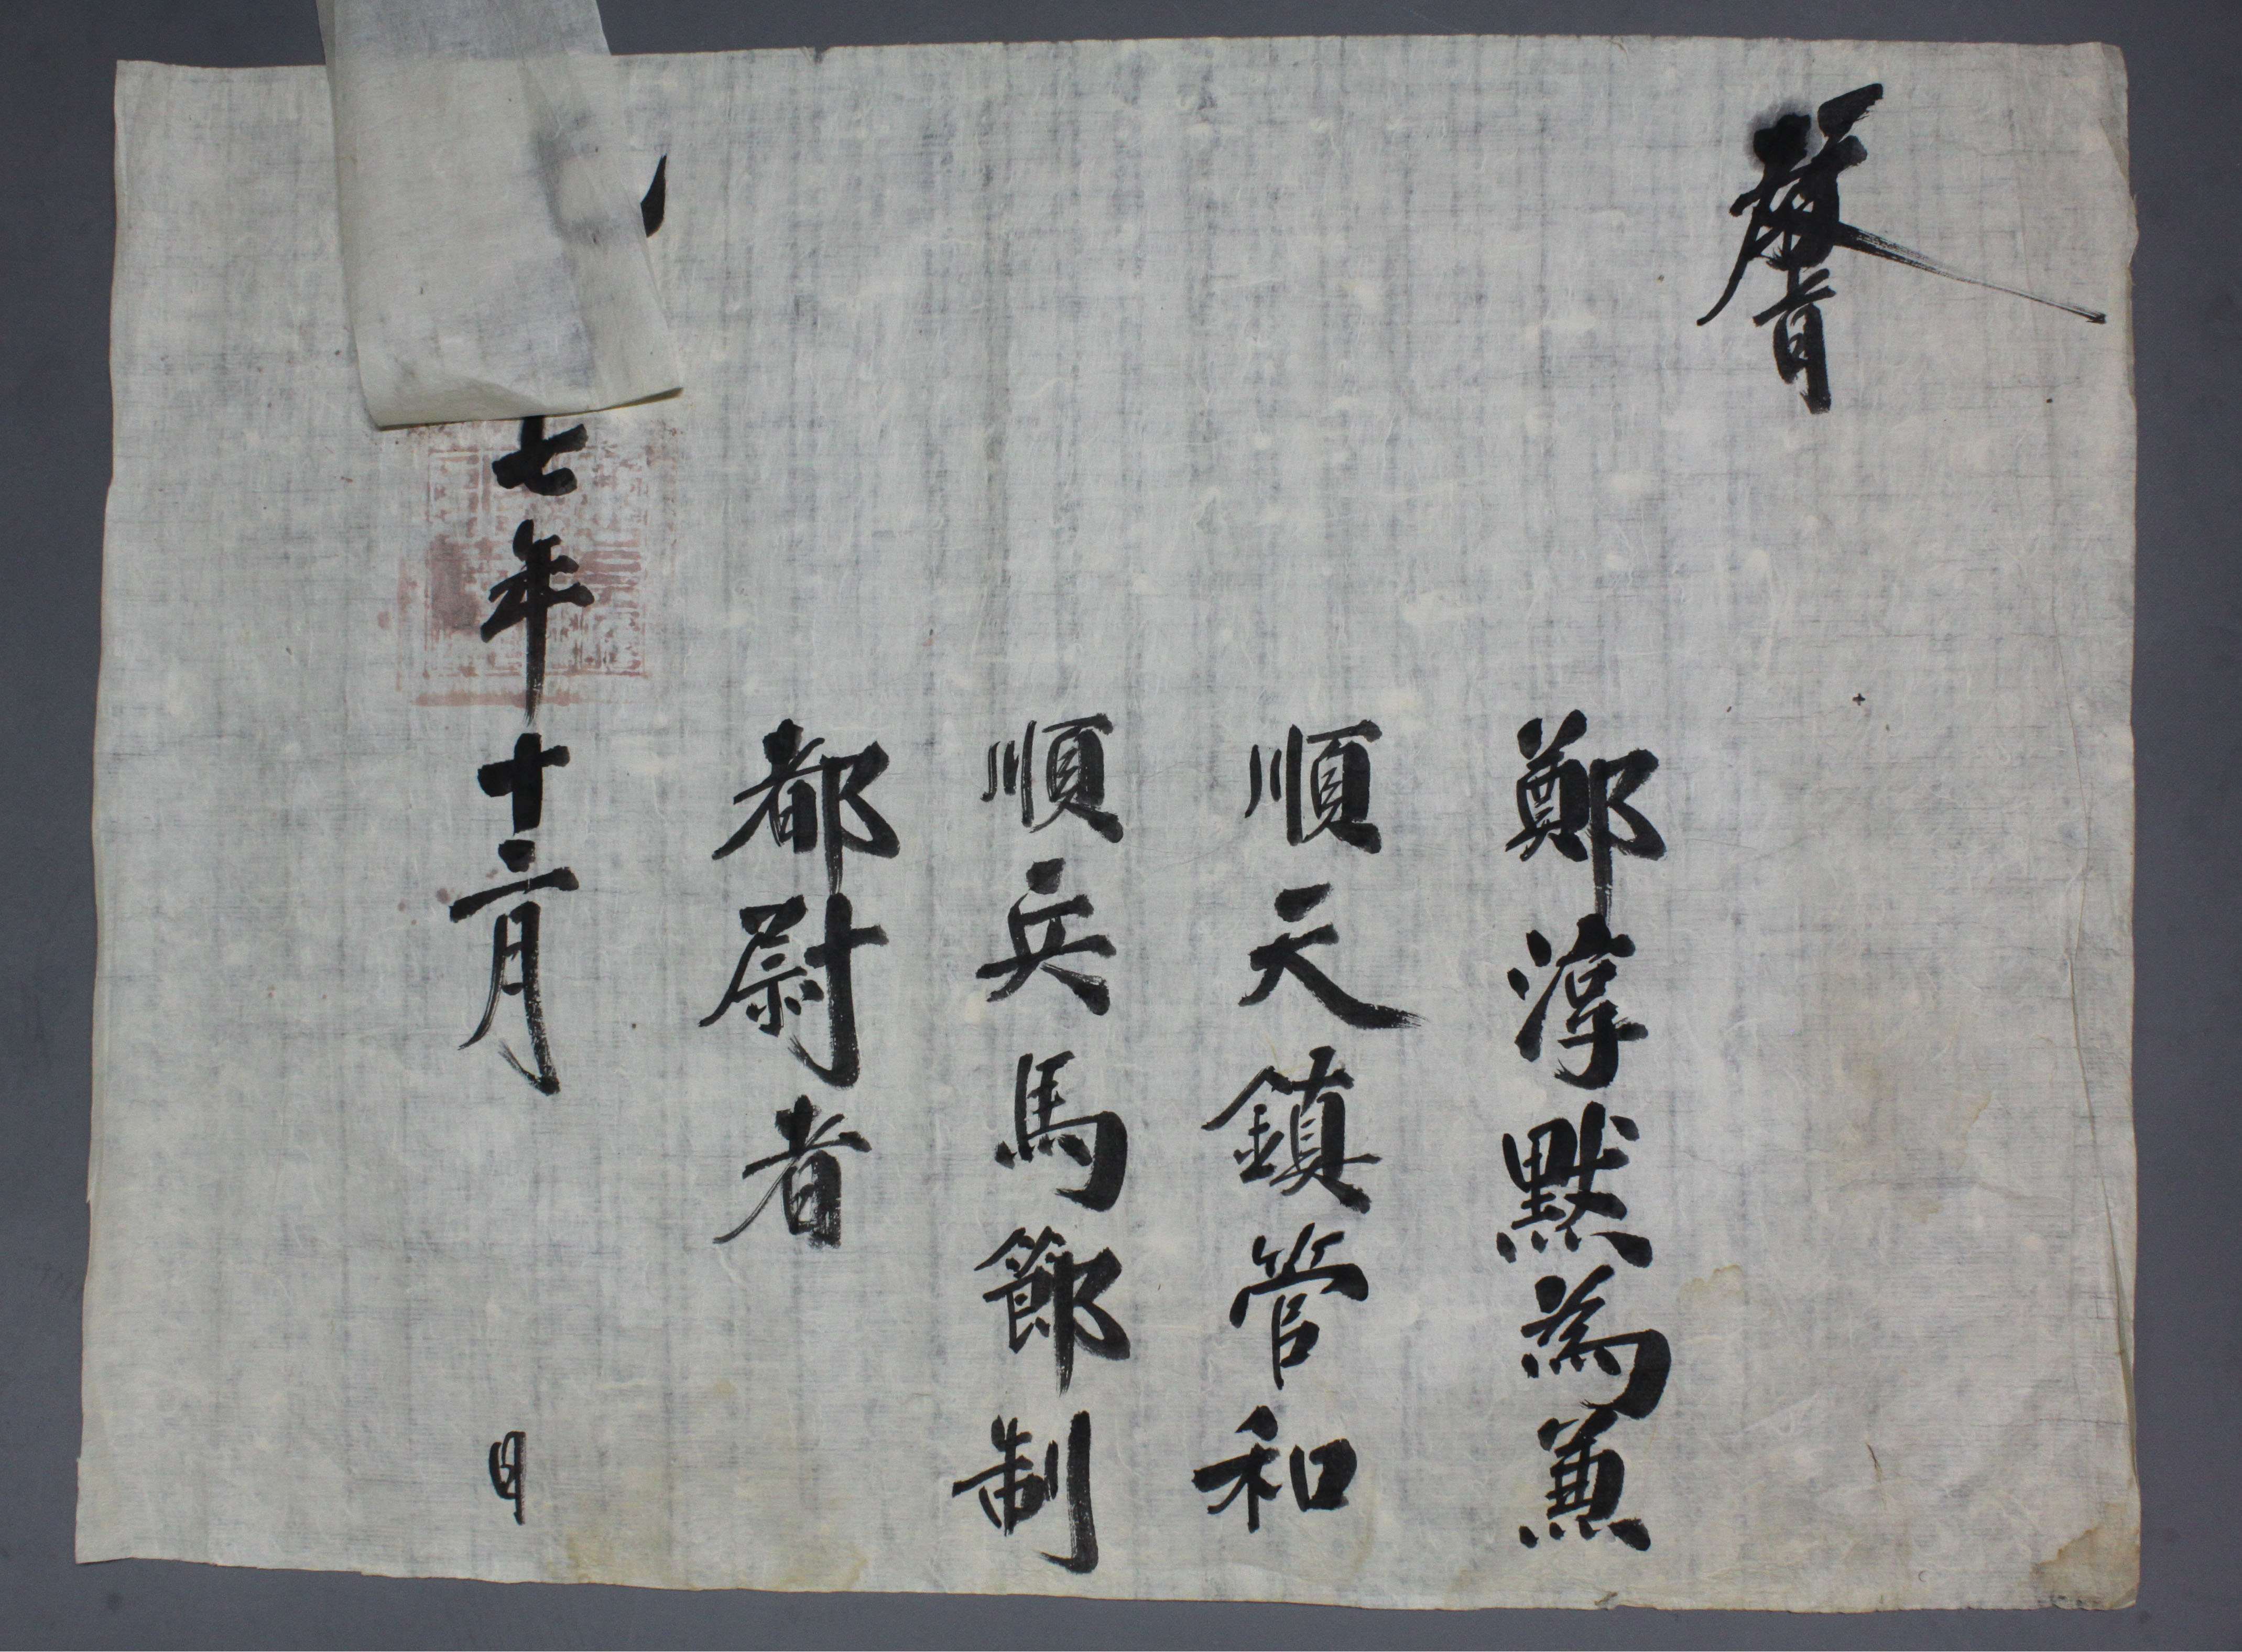 教旨
鄭淳默為兼
順天鎮管和
順兵馬節制
都尉者
七年十二月 日